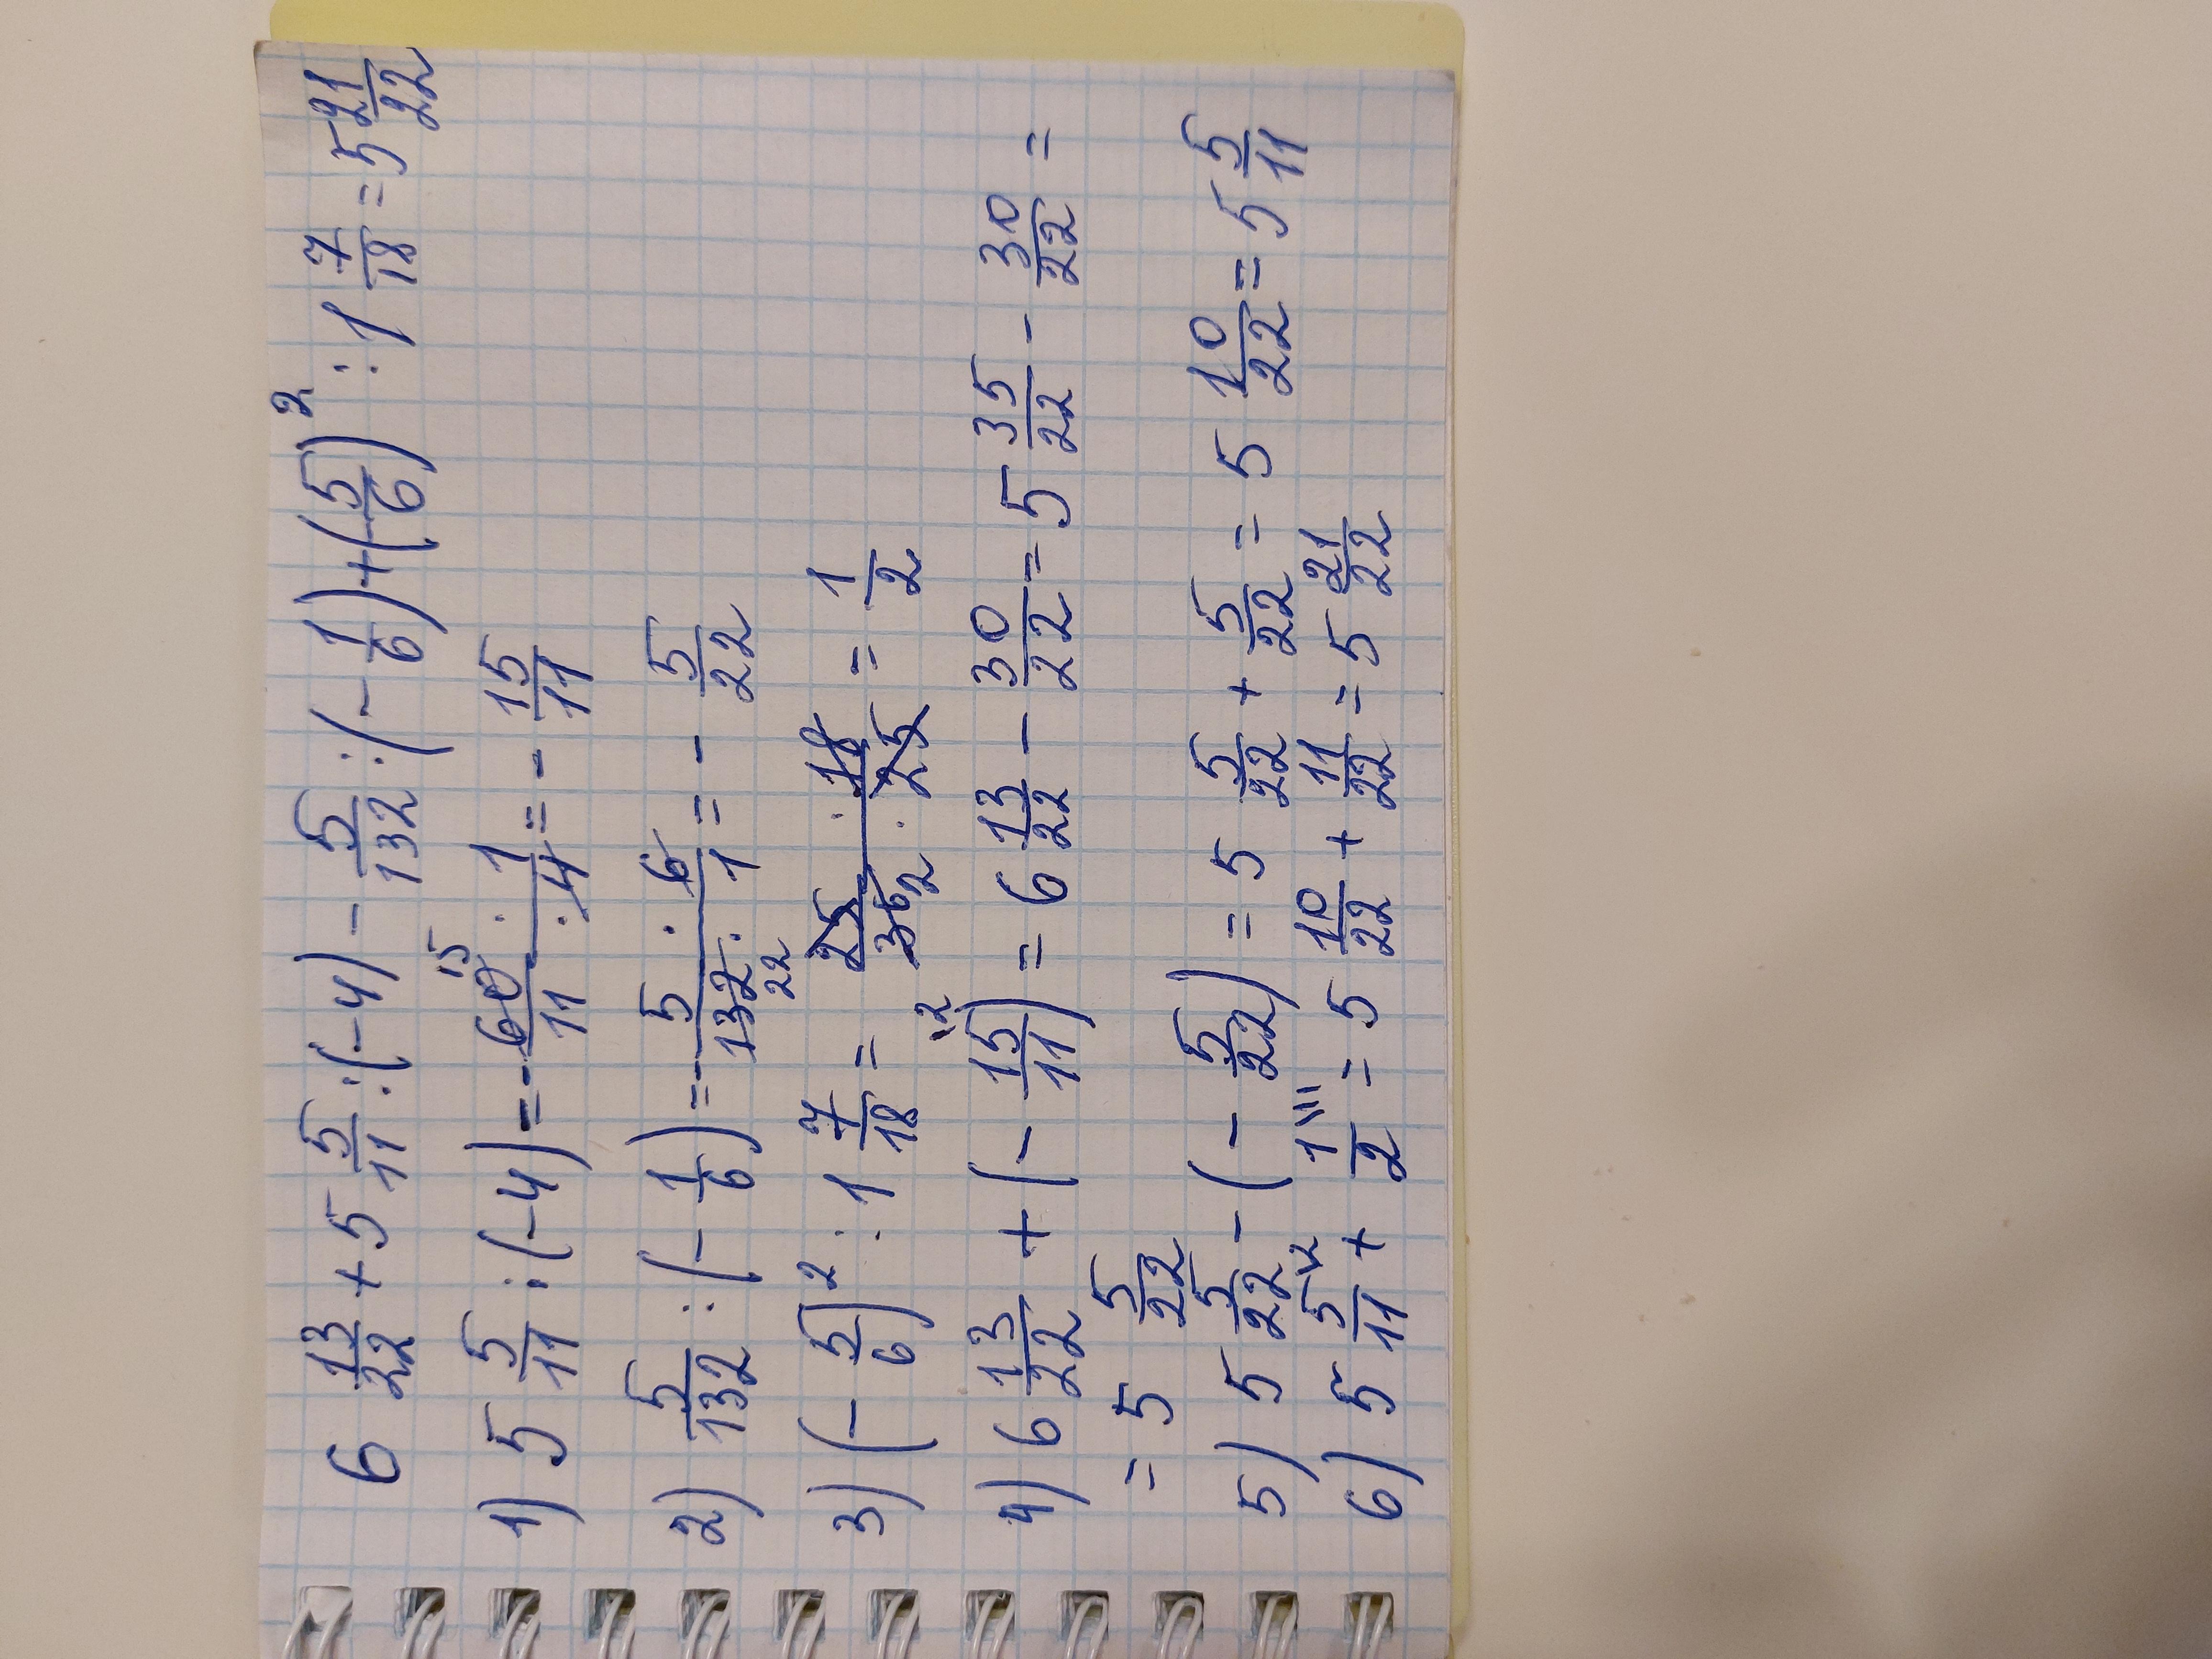 6 13/22 + 5 5/11 : (-4) - 5/132 : (-1/6) + (5/6)² : 1 7/18 = 5 21/22
1) 5 5/11 : (-4) = - 60 15/11 · 1/4 = - 15/11
2) 5/132 : (-1/6) = - 5 · 6/132 22 · 1 = - 5/22
3) (-5/6)² : 1 7/18 = 25 · 18/36 2 · 25 = 1/2
4) 6 13/22 + (-15/11)\2 = 6 13/22 - 30/22 = 5 35/22 - 30/22 =
= 5 5/22
5) 5 5/22 - (-5/22) = 5 5/22 + 5/22 = 5 10/22 = 5 5/11
6) 5 5/11\2 + 1/2\11 = 5 10/22 + 11/22 = 5 21/22